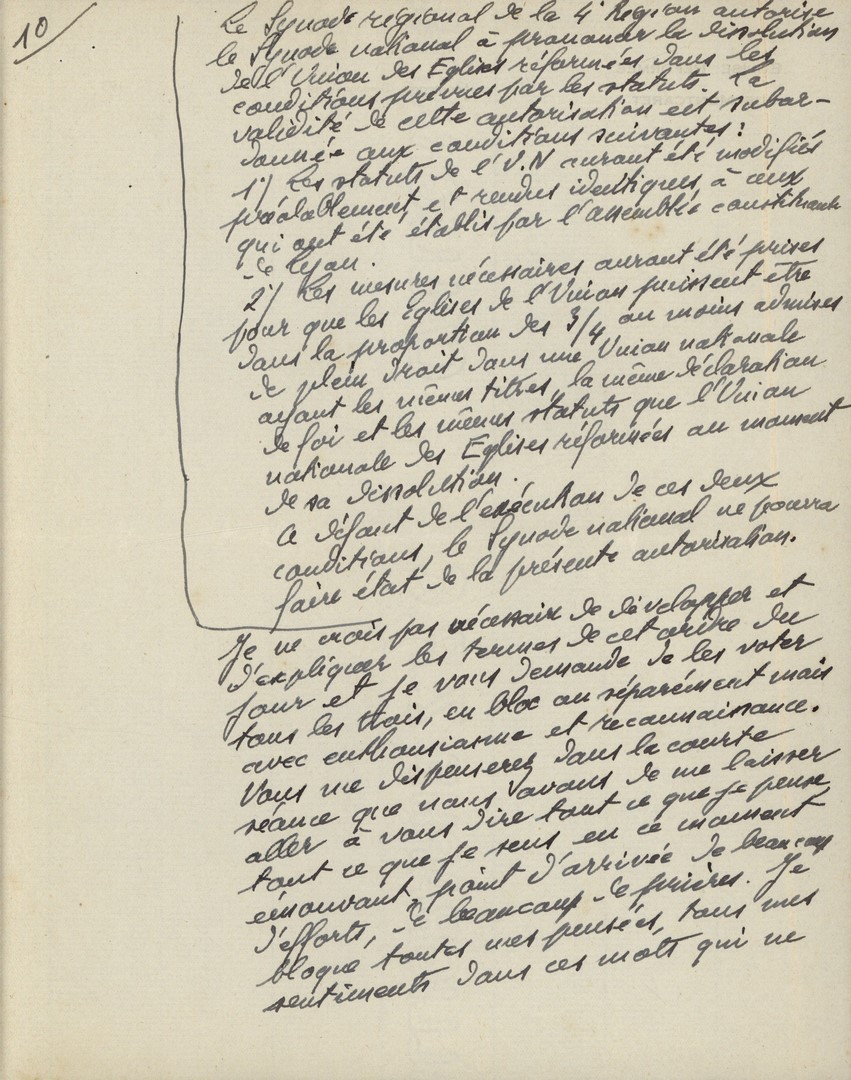 10
Le Synode régional de la 4e Région autorise
le Synode national à prononcer la dissolution
de l'Union des Eglises réformées dans les
conditions prévues par les statuts. La
validité de cette autorisation est subor-
donnée aux conditions suivantes :
1°/ Les statuts de l'U.N auront été modifiés
préalablement, et rendus identiques à ceux
qui ont été établis par l'assemblée constituante
de Lyon.
2°/ Les mesures nécessaires auront été prises
pour que les Eglises de l'Union puissent être
dans la proportion des 3/4 au moins admises
de plein droit dans une Union nationale
ayant les mêmes titres, la même déclaration
de foi et les mêmes statuts que l'Union
nationale des Eglises réformées au moment
de sa dissolution.
A défaut de l'exécution de ces deux
conditions, le Synode national ne pourra
faire état de la présente autorisation.
Je ne crois pas nécessaire de développer et
d'expliquer les termes de cet ordre du
jour et je vous demande de les voter
tous les trois, en bloc ou séparément mais
avec enthousiasme et reconnaissance.
Vous me dispenserez dans la courte
séance que nous avons de me laisser
aller à vous dire tout ce que je pense,
tout ce que je sens en ce moment
émouvant, point d'arrivée de beaucoup
d'efforts, de beaucoup de prières. Je
bloque toutes mes pensées, tous mes
sentiments dans ces mots qui ne